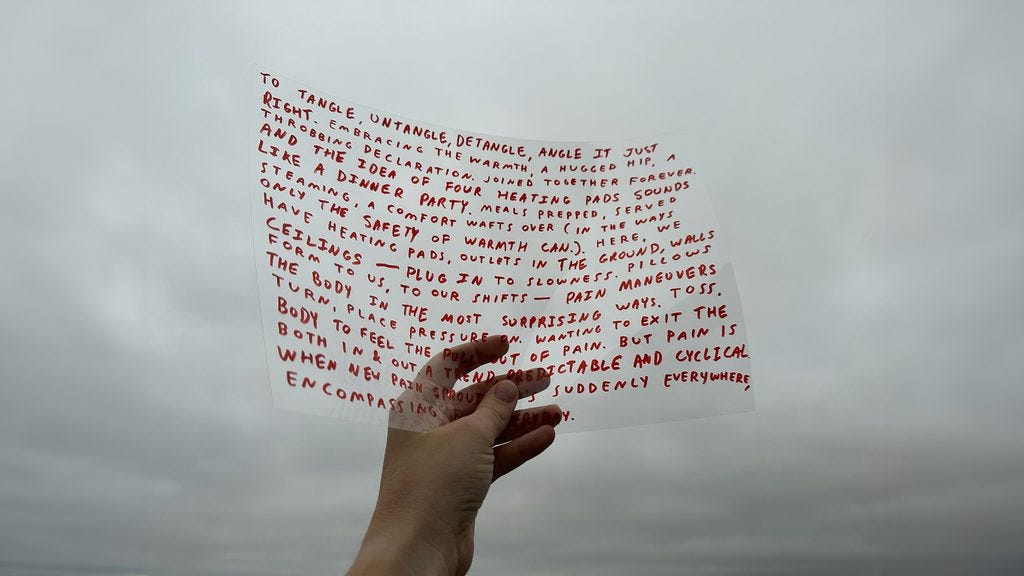 TO TANGLE, UNTANGLE, DETANGLE, ANGLE IT JUST
RIGHT. EMBRACING THE WARMTH, A HUGGED HIP, A
THROBBING DECLARATION. JOINED TOGETHER FOREVER.
AND THE IDEA OF FOUR HEATING PADS SOUNDS
LIKE A DINNER PARTY. MEALS PREPPED, SERVED
STEAMING, A COMFORT WAFTS OVER (IN THE WAYS
ONLY THE SAFETY OF WARMTH CAN.). HERE, WE
HAVE HEATING PADS, OUTLETS IN THE GROUND, WALLS
CEILINGS — PLUG IN TO SLOWNESS. PILLOWS
FORM TO US, TO OUR SHIFTS — PAIN MANEUVERS
THE BODY IN THE MOST SURPRISING WAYS. TOSS.
TURN, PLACE PRESSURE ON. WANTING TO EXIT THE
BODY TO FEEL THE PULL OUT OF PAIN. BUT PAIN IS
BOTH IN & OUT, A TREND PREDICTABLE AND CYCLICAL.
WHEN NEW PAIN SPROUTS SUDDENLY EVERYWHERE,
ENCOMPASSING